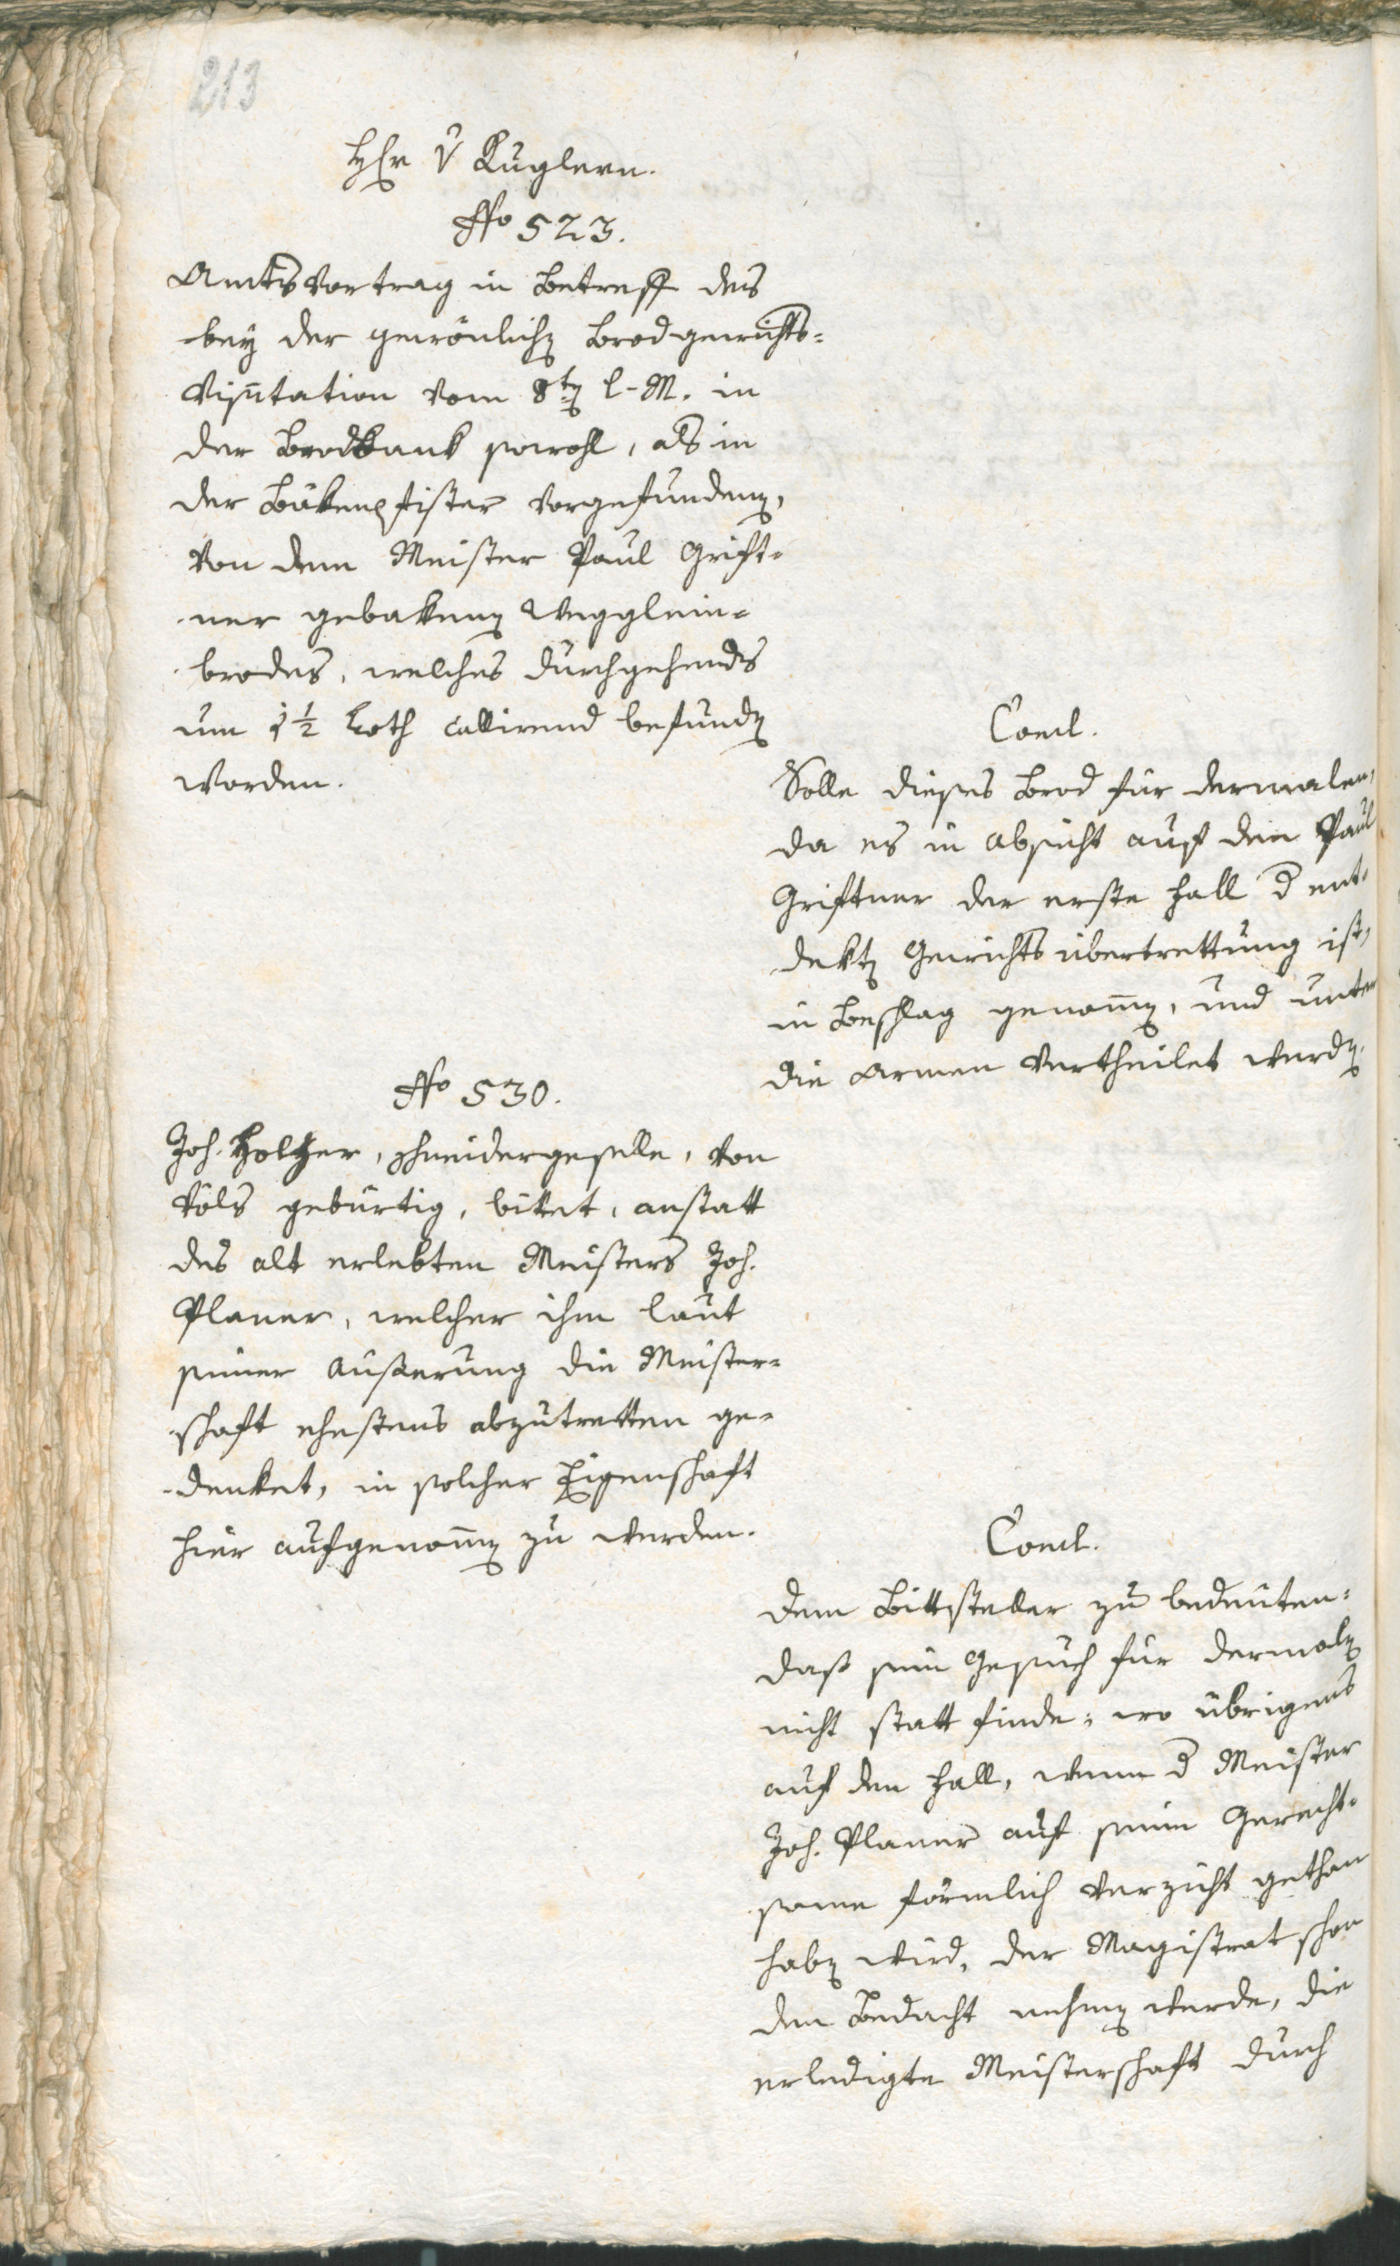 213
Hr v Kuglern.
No 523.
Amtsvortrag in Betreff des
bey der gewönlichen Brodgewichts-
Visitation vom 8ten l. M. in
der Brodbank sowohl, als in
der Bäkenpfister vorgefundenen,
von dem Meister Paul Grift-
ner gebakenen Wegglein-
brodes, welches durchgehends
um 1 1/2 Loth callirend befunden
worden.
Concl.
Solle dieses Brod für dermalen,
da es in Absicht auf den Paul
Griftner der erste Fall d ent-
dekten Gewichtsübertrettung ist,
in Beschlag genommen, und unter
die Armen vertheilet werden.
No 530.
Joh. Holzer, Schneidergeselle, von
Völs gebürtig, bittet, anstatt
des alt erlebten Meisters Joh.
Planer, welcher ihm laut
seiner Äusserung die Meister-
schaft ehestens abzutretten ge-
denket, in solcher Eigenschaft
hier aufgenommen zu werden.
Concl.
Dem Bittsteller zu bedeuten:
dass sein Gesuch für dermalen
nicht statt finde; wo übrigens
auf den Fall, wenn d Meister
Joh. Planer auf seine Gerecht-
same förmlich Verzicht gethan
haben wird, der Magistrat schon
den Bedacht nehmen werde, die
erledigte Meisterschaft durch